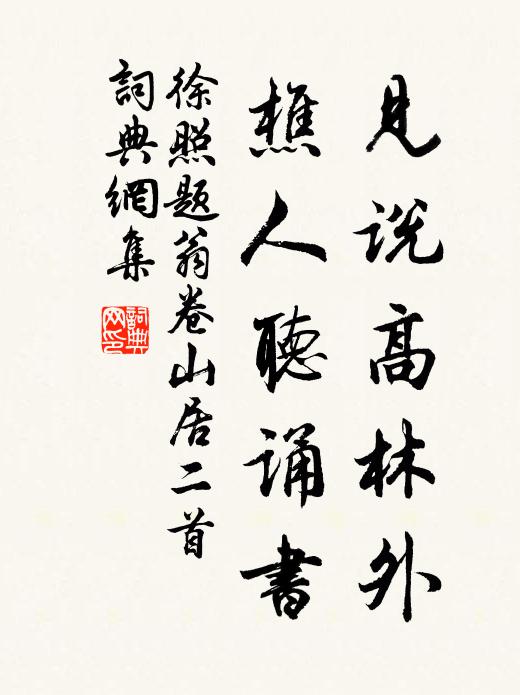 見说高林外
樵人聽诵書
徐照题翁卷山居二首
詞典網集
詞典
网印